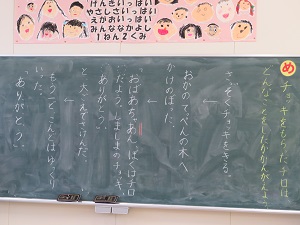 げんきいっぱい
やさしさいっぱい
えがおいっぱい
みんななかよし
1ねん2くみ
め
チョッキをもらったチロは
どんなことをしたのかかんがえよう
さっそくチョッキをきる。
↓
おかのてっぺんの木へ
かけのぼった。
↓
「おばあちゃあん、ぼくはチロ
だよう。しましまのチョッキ、
ありがとう。」
と、大ごえでさけんだ。
↓
もう一ど、こんどはゆっくり
いった。
「ありがとう。」